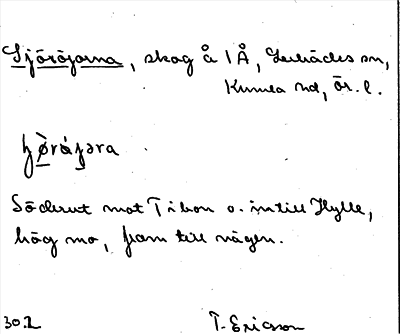 Sjöröjorna, skog å 1Å, Lerbäcks sn,
Kumla hd, Ör. l.
Söderut mot Tibon o. intill Hylle,
hög mo, fram till vägen.
302 T. Ericson